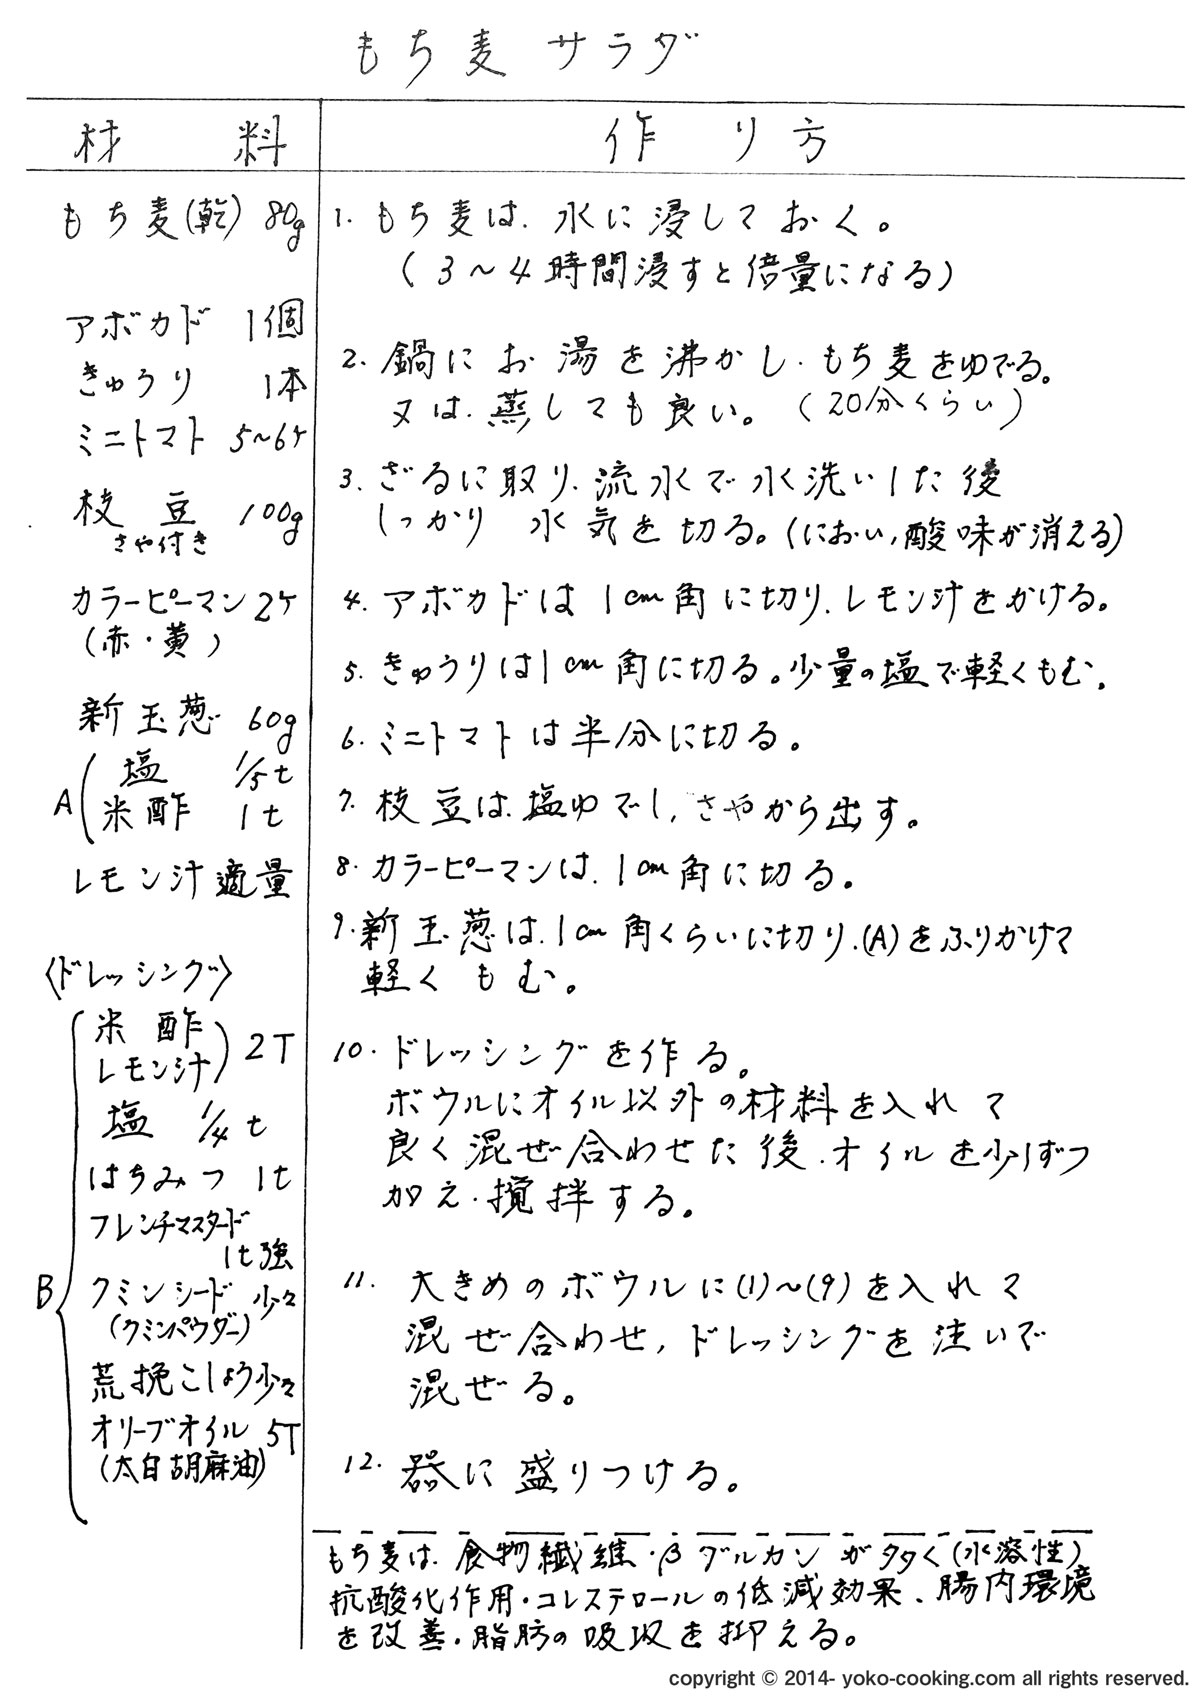 もち麦サラダ
材料
作り方
もち麦(乾) 80g
アボカド 1個
きゅうり 1本
ミニトマト 5〜6ケ
枝豆 100g
さや付き
カラーピーマン 2ケ
(赤・黄)
新玉葱 60g
A
塩 1/5t
米酢 1t
レモン汁 適量
〈ドレッシング〉
B
米酢
レモン汁 2T
塩 1/4t
はちみつ 1t
フレンチマスタード
1t強
クミンシード 少々
(クミンパウダー)
荒挽こしょう 少々
オリーブオイル 5T
(太白胡麻油)
1. もち麦は、水に浸しておく。
(3〜4時間浸すと倍量になる)
2. 鍋にお湯を沸かし、もち麦をゆでる。
又は、蒸しても良い。(20分くらい)
3. ざるに取り、流水で水洗いした後
しっかり水気を切る。(におい、酸味が消える)
4. アボカドは1cm角に切り、レモン汁をかける。
5. きゅうりは1cm角に切る。少量の塩で軽くもむ。
6. ミニトマトは半分に切る。
7. 枝豆は、塩ゆでし、さやから出す。
8. カラーピーマンは、1cm角に切る。
9. 新玉葱は、1cm角くらいに切り、(A)をふりかけて
軽くもむ。
10. ドレッシングを作る。
ボウルにオイル以外の材料を入れて
良く混ぜ合わせた後、オイルを少しずつ
加え、撹拌する。
11. 大きめのボウルに(1)〜(9)を入れて
混ぜ合わせ、ドレッシングを注いで
混ぜる。
12. 器に盛りつける。
もち麦は、食物繊維・βグルカンが多く(水溶性)
抗酸化作用・コレステロールの低減効果、腸内環境
を改善・脂肪の吸収を抑える。
copyright © 2014- yoko-cooking.com all rights reserved.